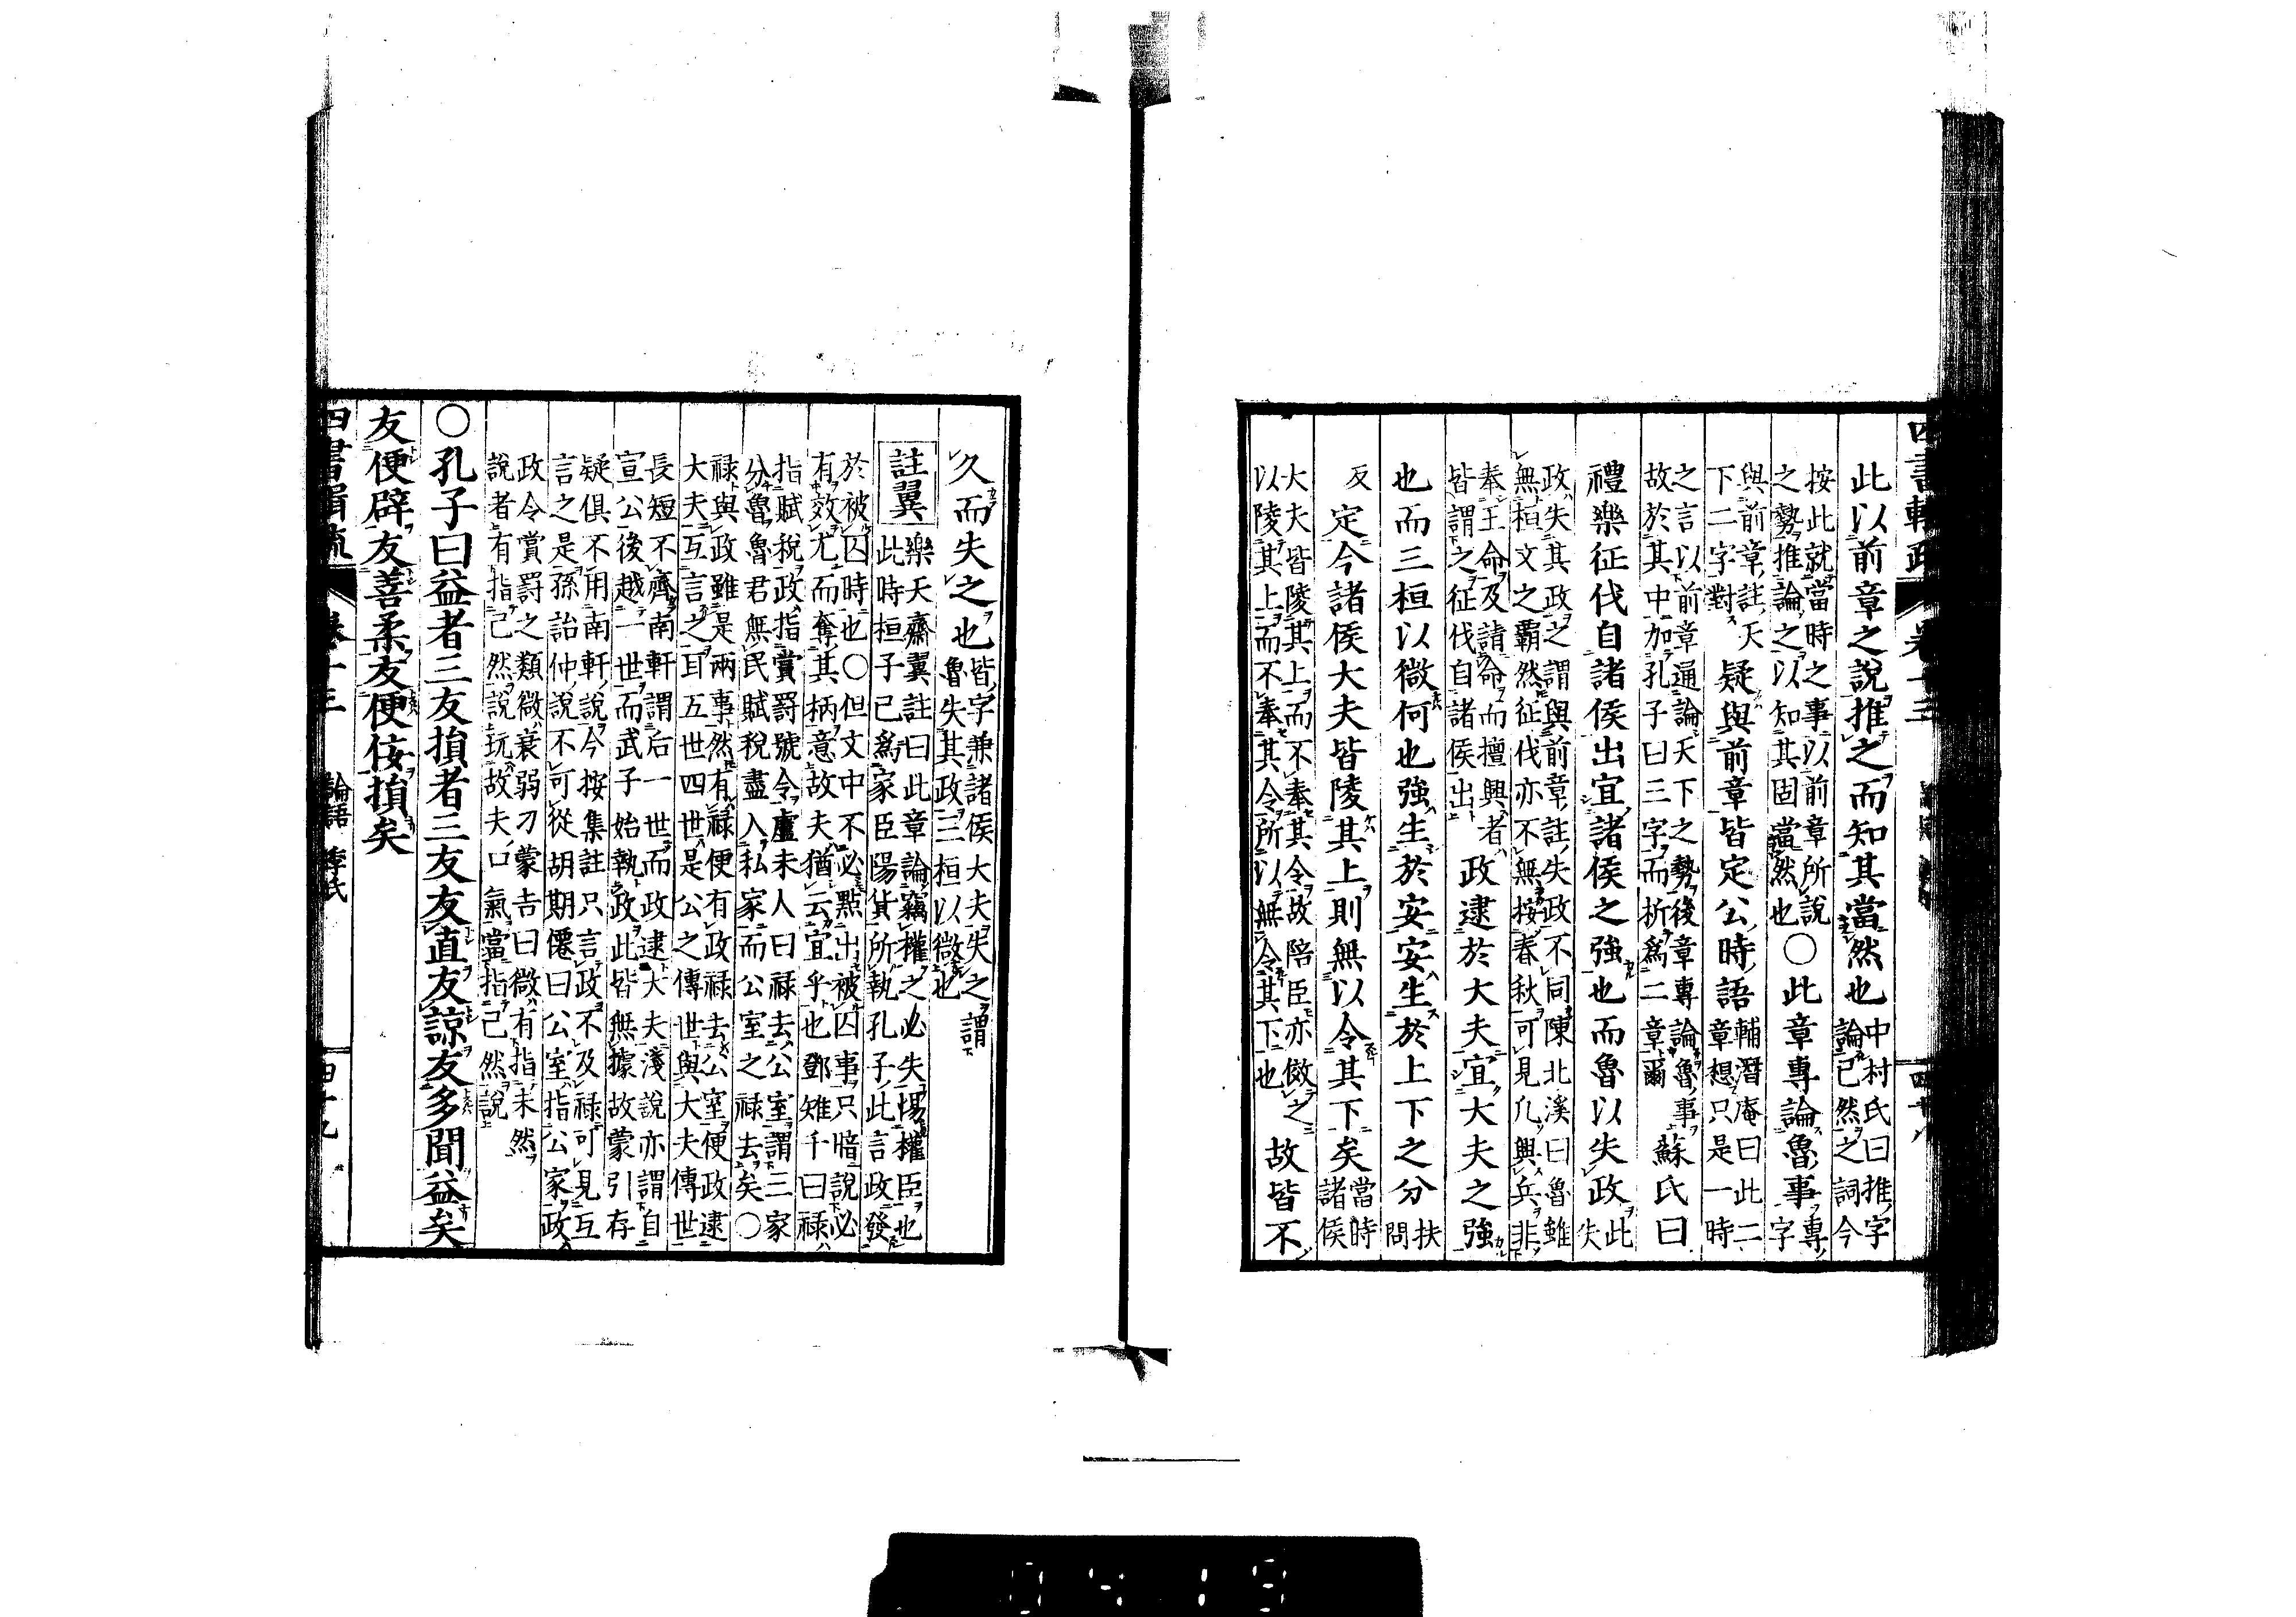 此以前章之說推之而知其當然也中村氏曰推字
論已然之詞今
按此就當時之事以前章所說
之勢推論之以知其固當然也〇此章專論魯事專
字
與前章註天
下二字對疑與前章皆定公時語輔潛庵曰此二
章想只是一時
之言以前章通論天下之勢後章專論魯事
故於其中加孔子曰三字而析爲二章爾蘇氏曰
禮樂征伐自諸侯出宜諸侯之強也而魯以失政此
失
政失其政之謂與前章註失政不同陳北溪曰魯雖
無桓文之霸然征伐亦不無按春秋可見凡興兵非
奉王命及請命而擅興者
皆謂之征伐自諸侯出政逮於大夫宜大夫之強
也而三桓以微何也強生於安安生於上下之分扶
問
反定今諸侯大夫皆陵其上則無以令其下矣當時
諸侯
大夫皆陵其上而不奉其令故陪臣亦倣之
以陵其上而不奉其令所以無令其下也故皆不
久而失之也皆字兼諸侯大夫失之謂
魯失其政三桓以微也
註翼樂天齋翼註曰此章論竊權之必失惕權臣也
此時桓子已爲家臣陽貨所執孔子此言政發
於被囚時也〇但文中不必點出被囚事只暗說必
有效尤而奪其柄意故夫猶云宜乎也鄧雉千曰祿
指賦稅政指賞罰號令盧未人曰祿去公室謂三家
分魯魯君無民賦稅盡入私家而公室之祿去矣〇
祿與政雖是兩事然有祿便有政祿去公室便政逮
大夫互言之耳五世四世是公之傳世與大夫傳世
長短不齊南軒謂后一世而政逮大夫淺說亦謂自
宣公後越一世而武子始執政此皆無據故蒙引存
疑俱不用南軒說今按集註只言政不及祿可見互
言之是孫詒仲說不可從胡期僊曰公室指公家政
政令賞罰之類微衰弱刁蒙吉曰微有指未然
說者有指已然說玩故夫口氣當指已然說
〇孔子曰益者三友損者三友友直友諒友多聞益矣
友便辟友善柔友便佞損矣
卷十三 論語 季氏 四十九